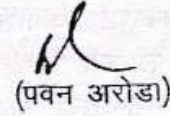 (पवन अरोडा)